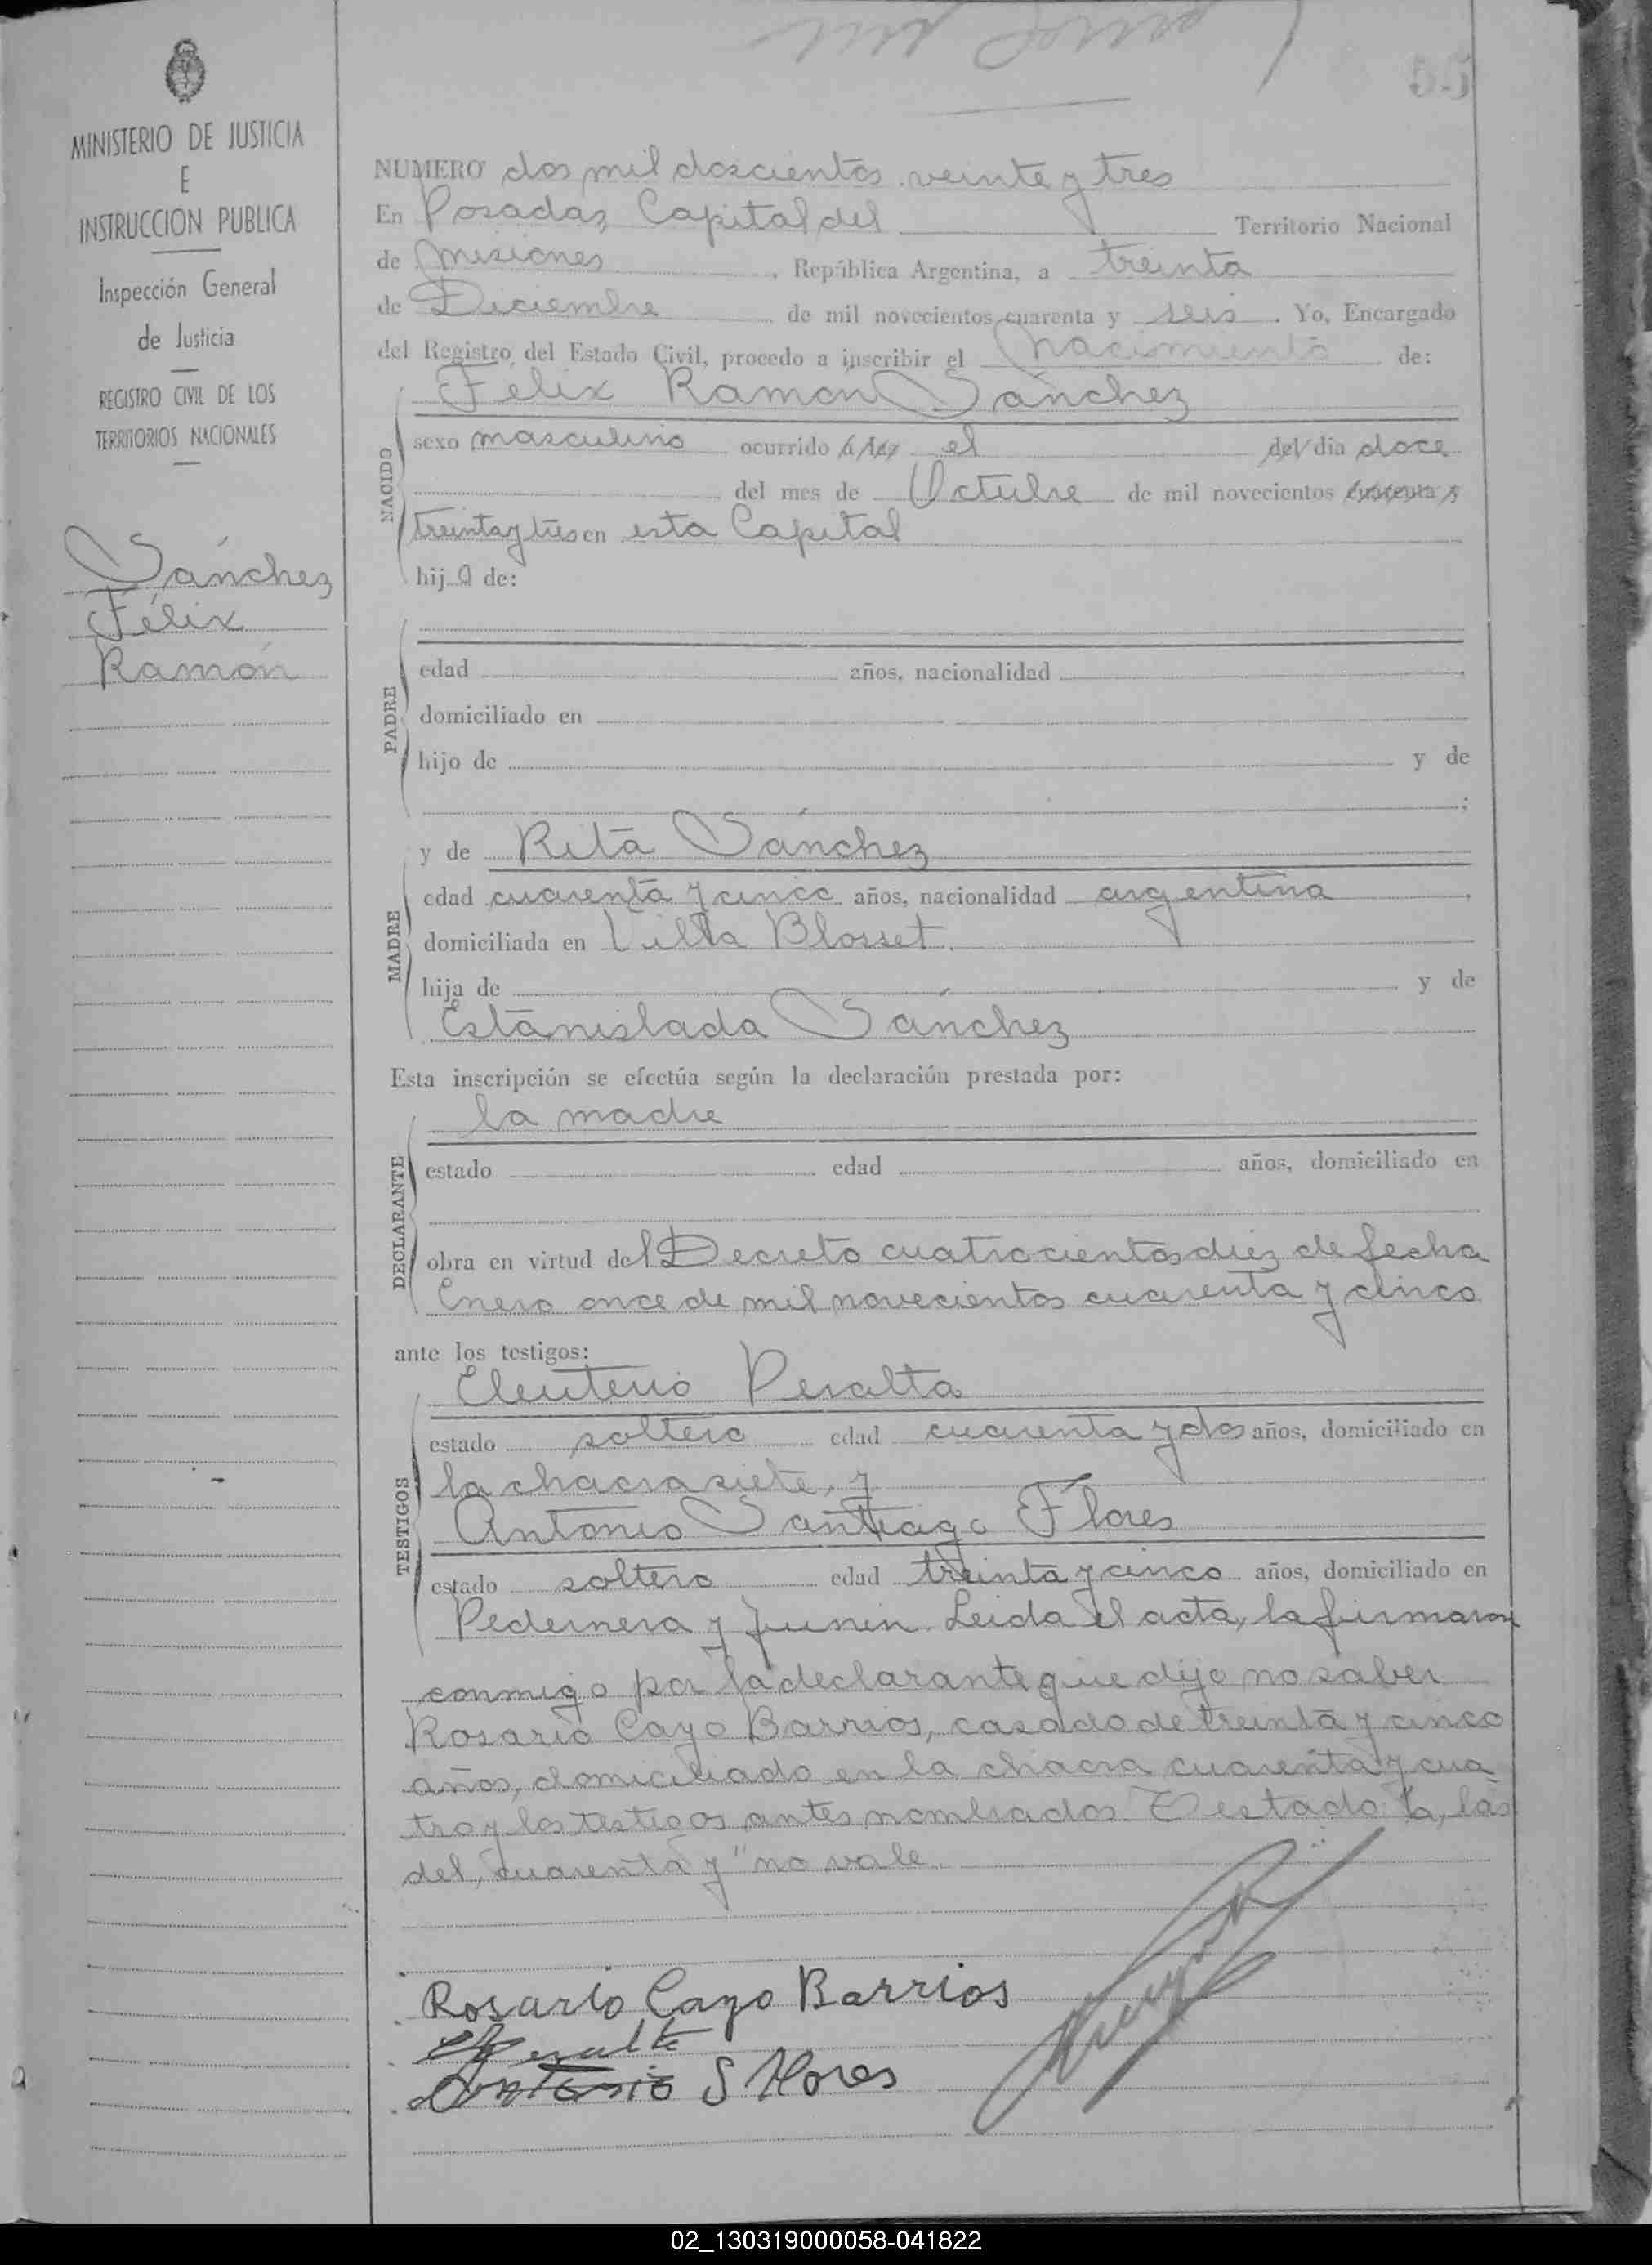 55
MINISTERIO DE JUSTICIA
E
INSTRUCCION PUBLICA
Inspección General
de Justicia
REGISTRO CIVIL DE LOS
TERRITORIOS NACIONALES
Sánchez
Félix
Ramón
NUMERO dos mil doscientos veinte y tres
En Posadas, Capital del Territorio Nacional
de Misiones, República Argentina, a treinta
de Diciembre de mil novecientos cuarenta y seis. Yo, Encargado
del Registro del Estado Civil, procedo a inscribir el nacimiento de:
Félix Ramon Sánchez
NACIDO
sexo masculino ocurrido á las el del dia doce
del mes de Octubre de mil novecientos cuarenta y
treinta y tres en esta Capital
hijo de:
PADRE
edad años, nacionalidad
domiciliado en
hijo de y de
;
y de Rita Sánchez
MADRE
edad cuarenta y cinco años, nacionalidad argentina
domiciliada en Villa Blosset.
hija de y de
Estanislada Sánchez
Esta inscripción se efectúa según la declaración prestada por:
la madre
DECLARANTE
estado edad años, domiciliado en
obra en virtud del Decreto cuatrocientos diez de fecha
Enero once de mil novecientos cuarenta y cinco
ante los testigos:
Eleuterio Peralta
TESTIGOS
estado soltero edad cuarenta y dos años, domiciliado en
la chacra siete, y
Antonio Santiago Flores
estado soltero edad treinta y cinco años, domiciliado en
Pedernera y Junin. Leida el acta, la firmaron
conmigo por la declarante que dijo no saber
Rosario Cayo Barrios, casado de treinta y cinco
años, domiciliado en la chacra cuarenta y cua
tro y los testigos antes nombrados. Testado: "a, las
del, cuarenta y" no vale.
Rosario Cayo Barrios
E Peralta
Antonio S Flores
02_130319000058-041822